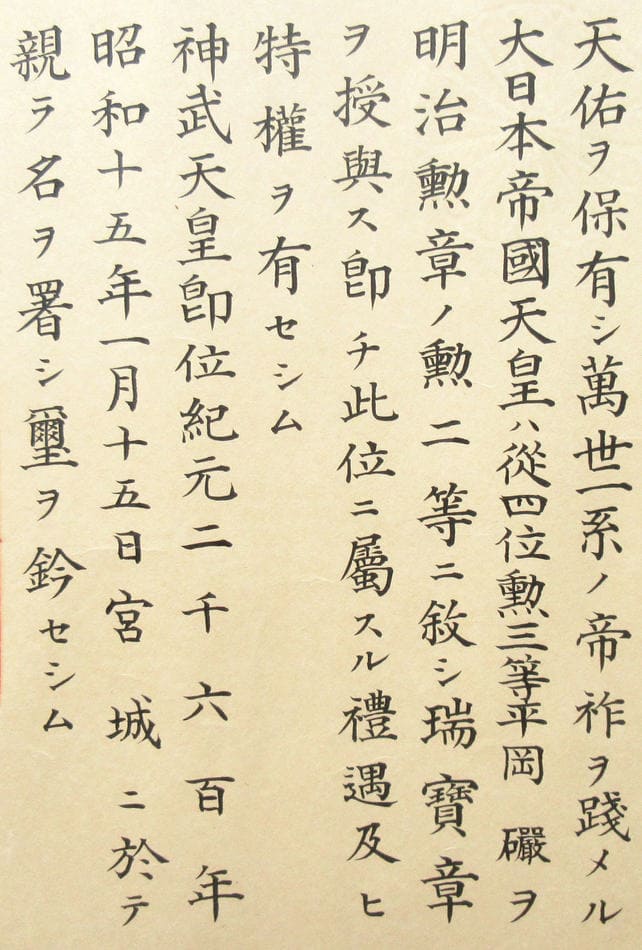 天佑ヲ保有シ萬世一系ノ帝祚ヲ踐メル
大日本帝國天皇ハ從四位勲三等平岡 巖ヲ
明治勲章ノ勲二等ニ敘シ瑞寶章
ヲ授與ス卽チ此位ニ屬スル禮遇及ヒ
特權ヲ有セシム
神武天皇卽位紀元二千六百年
昭和十五年一月十五日宮城ニ於テ
親ラ名ヲ署シ璽ヲ鈐セシム